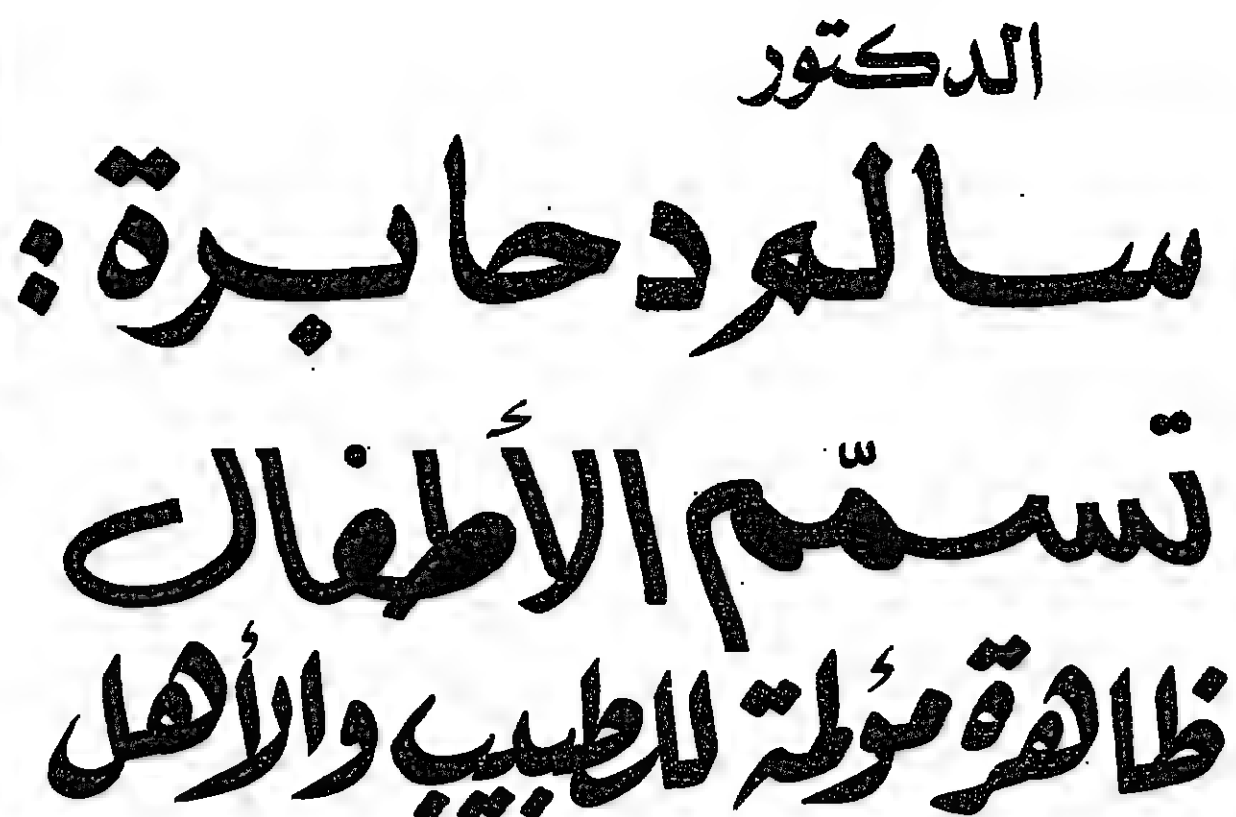 الدكتور
سالم دحابرة :
تسمّم الأطفال
ظاهرة مؤلمة للطبيب والأهل